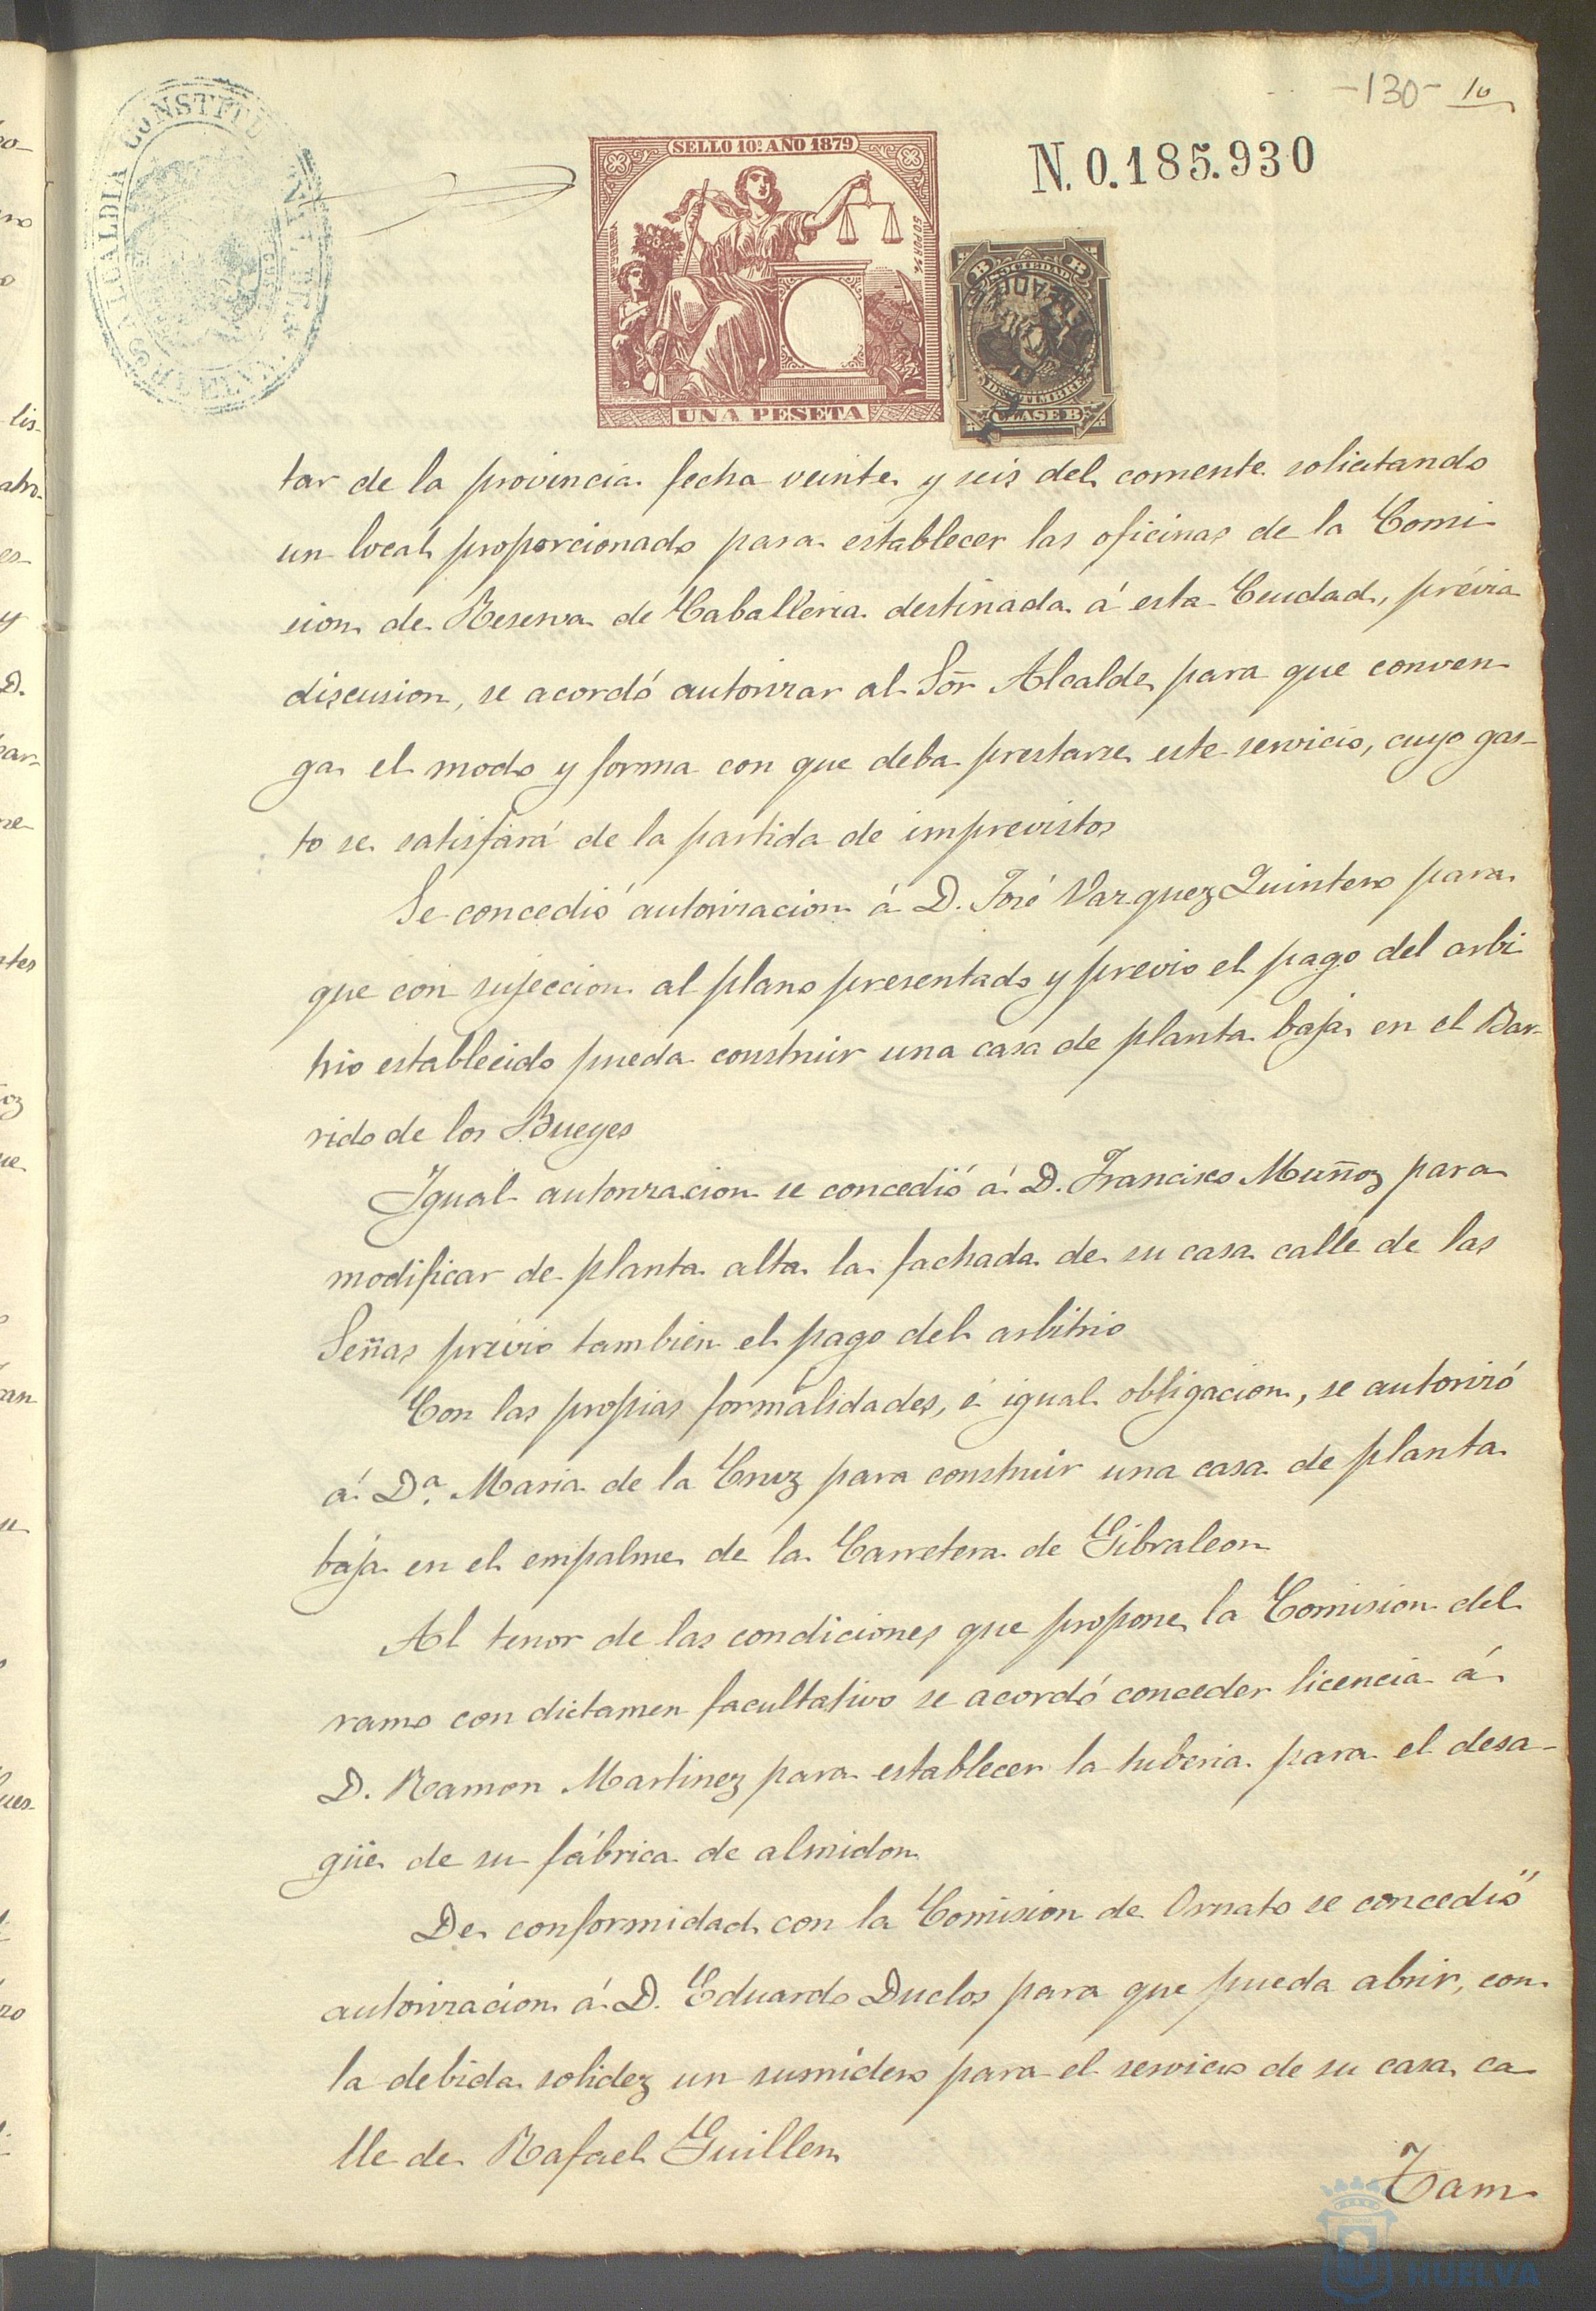 -130- 10
ALCALDIA CONSTITU
SELLO 10º AÑO 1879
50 POR %
UNA PESETA
N. 0.185.930
B SOCIEDAD B
DEL TIMBRE
CLASE B
tar de la provincia fecha veinte y seis del corriente solicitando
un local proporcionado para establecer las oficinas de la Comi
sion de Reserva de Caballeria destinada á esta Ciudad, prévia
discusion, se acordó autorizar al Sõr Alcalde para que conven
ga el modo y forma con que deba prestarse este servicio, cuyo gas-
to se satisfará de la partida de imprevistos
Se concedió autorizacion á D. José Vazquez Quintero para
que con sujeccion al plano presentado y previo el pago del arbi
trio establecido pueda construir una casa de planta baja en el Bar-
rido de los Bueyes
Igual autorizacion se concedió á D. Francisco Muñoz para
modificar de planta alta la fachada de su casa calle de las
Señas prévio tambien el pago del arbitrio
Con las propias formalidades, é igual obligacion, se autorizó
á Dª. Maria de la Cruz para construir una casa de planta
baja en el empalme de la Carretera de Gibraleon
Al tenor de las condiciones que propone la Comision del
ramo con dictamen facultativo se acordó conceder licencia á
D. Ramon Martinez para establecer la tuberia para el desa-
güe de su fábrica de almidon
De conformidad con la Comision de Ornato se concedió
autorizacion á D. Eduardo Duclos para que pueda abrir, con
la debida solidez un sumidero para el servicio de su casa ca
lle de Rafael Guillen
Tam
HUELVA